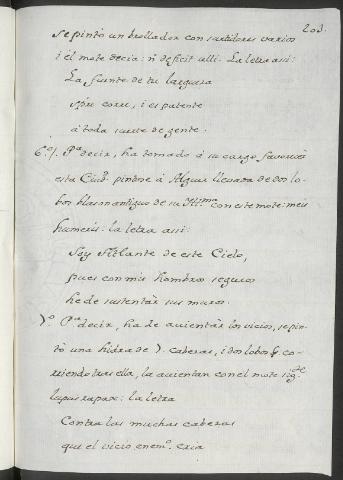 203.
se pintò un brollador con surtidores varios
i èl mote decia: ñ deficit alli. La letra assi:
La fuente de tu largueza
sp̃re corre, i es patente
à toda suerte de gente.
6.º Pª decir, ha tomado à su cargo
esta Ciud. pintose à Alguer llevada de dos lo-
bos blason antiguo de su Ill.ma con este mote: meis
humeris: la letra assi:
Soy Atlante de este Cielo,
pues con mis hombros seguros
he de sustentàr sus muros.
7.º Pª decir, ha de auientàr los vicios, se pin-
tò una hidra de 7. cabezas, i dos lobos q. co-
rriendo tras ella, la auientan con el mote sig.te
lupus rapax: la letra
Contra las muchas cabezas
que el vicio enem.º cria